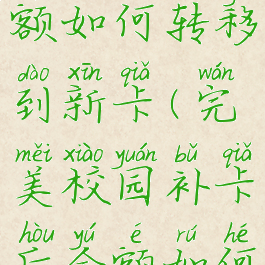 额如何转移
dào xīn qiǎ wán
到新卡(完
měi xiào yuán bǔ qiǎ
美校园补卡
hòu yú é rú hé
后余额如何